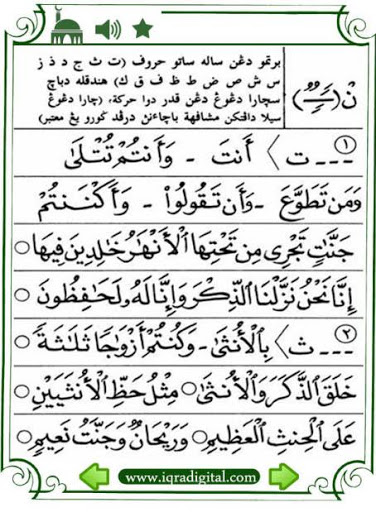 برتمو دڠن ساله ساتو حروف (ت ث ج د ذ ز
س ش ص ض ط ظ ف ق ك) هندقله دباچ
سچارا دڠوڠ دڠن قدر دوا حركة، (چارا دڠوڠ
سيلا دافتكن مشافهة باچاءنڽ درڤد ݢورو يڠ معتبر)
١ --- ت ⟩ أَنتَ - وَأَنتُمْ تَتْلَىٰ
وَمَن تَطَوَّعَ - وَأَن تَقُولُوا۟ - وَأَكْنَنتُمْ
جَنَّٰتٍ تَجْرِى مِن تَحْتِهَا ٱلْأَنْهَٰرُ خَٰلِدِينَ فِيهَا
إِنَّا نَحْنُ نَزَّلْنَا ٱلذِّكْرَ وَإِنَّا لَهُۥ لَحَٰفِظُونَ
٢ --- ث ⟩ بِٱلْأُنثَىٰ - وَكُنتُمْ أَزْوَٰجًا ثَلَٰثَةً
خَلَقَ ٱلذَّكَرَ وَٱلْأُنثَىٰ مِثْلُ حَظِّ ٱلْأُنثَيَيْنِ
عَلَى ٱلْحِنثِ ٱلْعَظِيمِ وَرَيْحَانٌ وَجَنَّتُ نَعِيمٍ
www.iqradigital.com